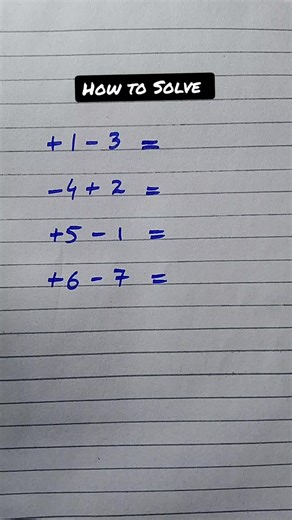 HOW TO SOLVE
+1 - 3 =
-4 + 2 =
+5 - 1 =
+6 - 7 =